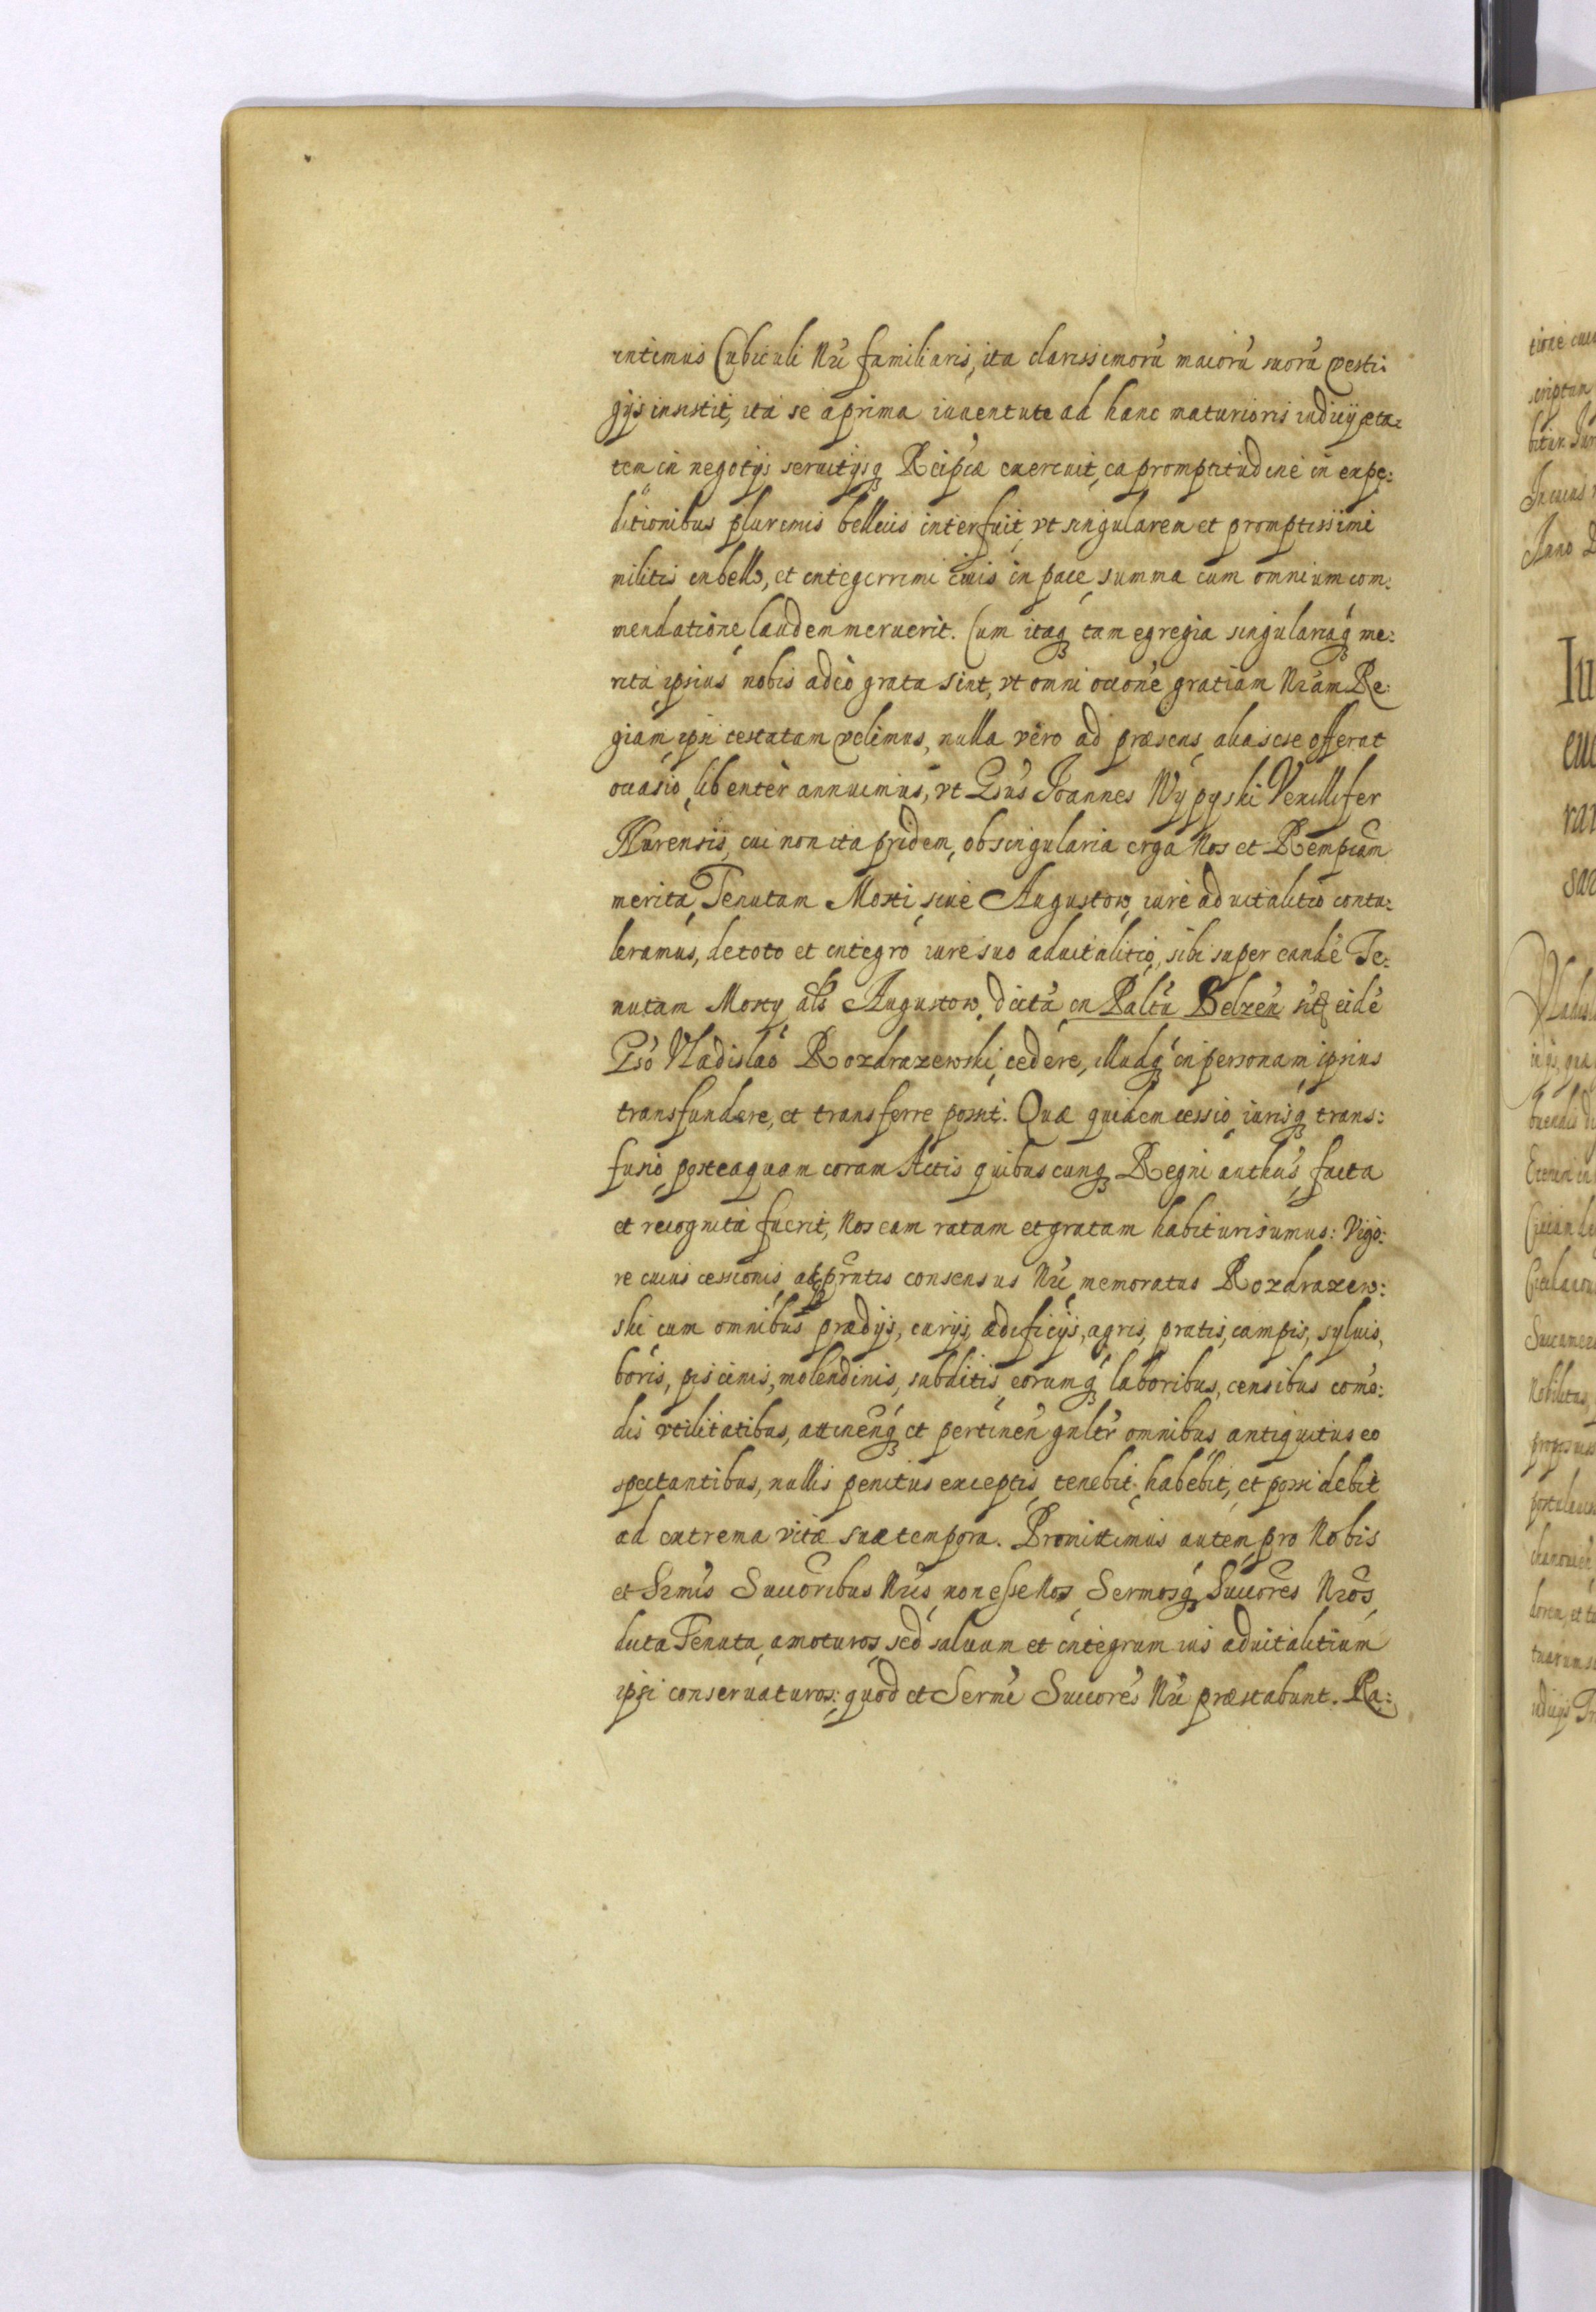 intimus Cubiculi Nri familiaris, ita clarissimorū maiorū suorū vesti:
gijs insistit, ita se a prima iuuentute ad hanc maturioris iudicij æta:
tem in negotijs seruitijsq Reipcæ exercuit, ea promptitudine in expe:
ditionibus plurimis bellicis interfuit, vt singularem et promptissimi
militis in bello, et integerrimi ciuis in pace, summa cum omnium com:
mendatione, laudem meruerit. Cum itaq tam egregia singulariaq me:
rita ipsius nobis adeò grata sint, vt omni occone gratiam Nram Re:
giam ipsi testatam velimus, nulla vero ad præsens alia sese offerat
occasio, libenter annuimus, vt Gsus Joannes Wypyski Vexillifer
Nurensis, cui non ita pridem, ob singularia erga Nos et Rempcam
merita, Tenutam Mosti siue Augustow, iure aduitalitio contu:
leramus, de toto et integro iure suo aduitalitio, sibi super eandē Te:
nutam Mosty als Augustow dictā in Paltū Belzen sit eidē
Gso Vladislao Rozdrazewski cedere, illudq in personam ipsius
transfundere, et transferre possit. Quæ quidem cessio, iurisq trans:
fusio, posteaquam coram Actis quibuscunq Regni authcis, facta
et recognita fuerit, Nos eam ratam et gratam habituri sumus: Vigo:
re cuius cessionis, atq prntis consensus Nri memoratus Rozdrazew:
ski cum omnibus prædijs, curijs, ædificijs, agris, pratis, campis, syluis,
boris, piscinis, molendinis, subditis eorumq laboribus, censibus como:
dis vtilitatibus, attinenq et pertinen gnltr omnibus, antiquitus eo
spectantibus, nullis penitus exceptis, tenebit, habebit, et possidebit
ad extrema vitæ suæ tempora. Promittimus autem, pro Nobis
et Srmis Succoribus Nris, non esse Nos, Sermosq Succores Nros,
dicta Tenuta, amoturos, sed saluum et integrum ius aduitalitium
ipsi conseruaturos: quod et Sermi Succores Nri præstabunt. Ra: